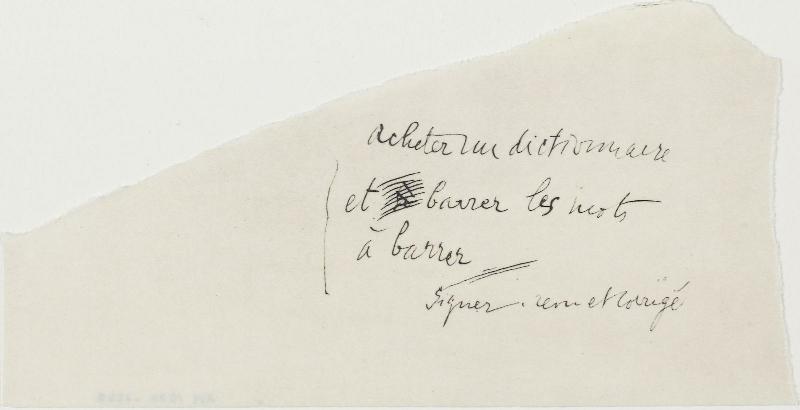 acheter un dictionnaire
et barrer les mots
à barrer
Signer. revu et corrigé